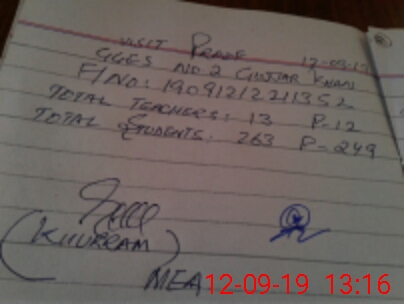 VISIT PROOF 12-09-19
GGES NO 2 GUJJAR KHAN
F/NO: 19091212211352
TOTAL TEACHERS: 13 P-12
TOTAL STUDENTS: 263 P-249
(KHURRAM)
MEA
12-09-19 13:16